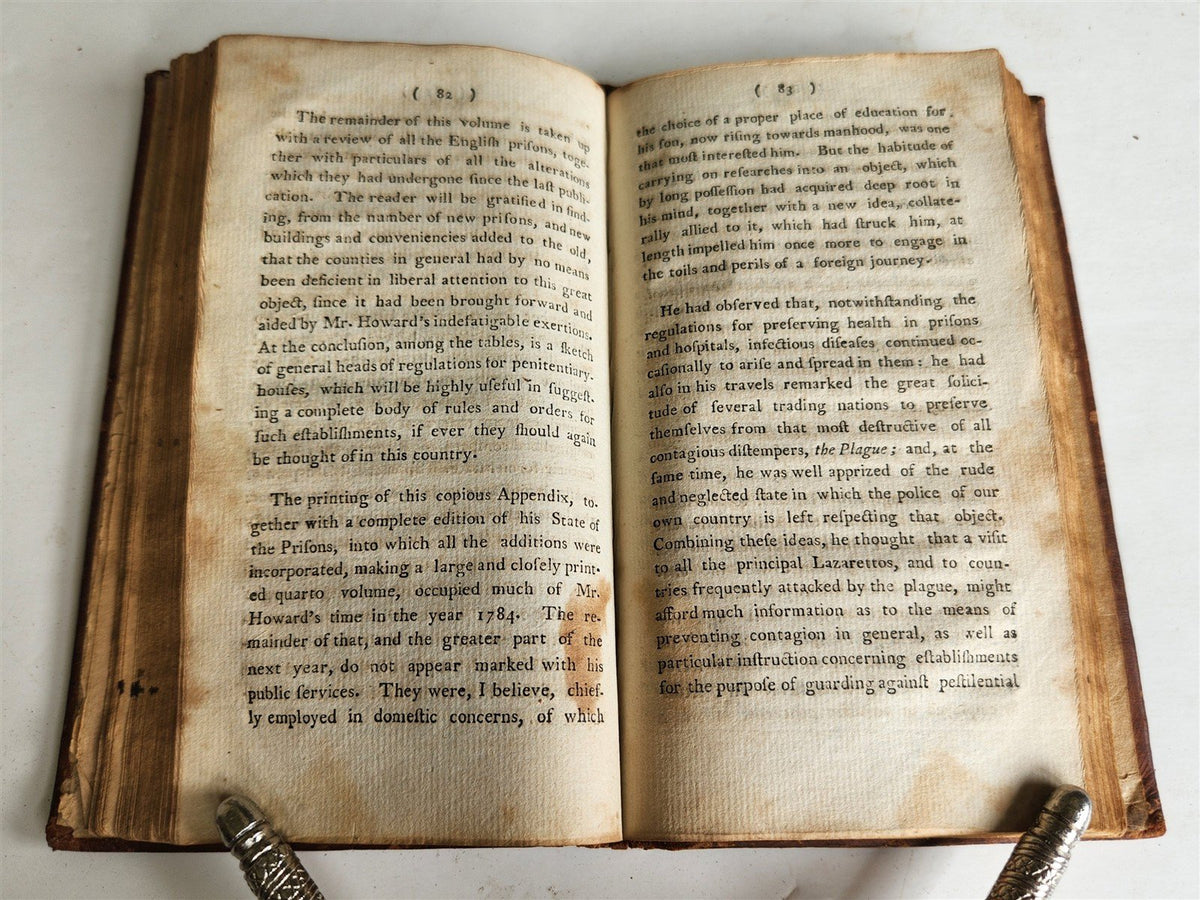 ( 82 )
The remainder of this volume is taken up
with a review of all the Engliſh priſons, toge-
ther with particulars of all the alterations
which they had undergone ſince the laſt publi-
cation. The reader will be gratified in find-
ing, from the number of new priſons, and new
buildings and conveniencies added to the old,
that the counties in general had by no means
been deficient in liberal attention to this great
object, ſince it had been brought forward and
aided by Mr. Howard's indefatigable exertions.
At the concluſion, among the tables, is a ſketch
of general heads of regulations for penitentiary-
houſes, which will be highly uſeful in ſuggeſt-
ing a complete body of rules and orders for
ſuch eſtabliſhments, if ever they ſhould again
be thought of in this country.
The printing of this copious Appendix, to-
gether with a complete edition of his State of
the Priſons, into which all the additions were
incorporated, making a large and cloſely print-
ed quarto volume, occupied much of Mr.
Howard's time in the year 1784. The re-
mainder of that, and the greater part of the
next year, do not appear marked with his
public ſervices. They were, I believe, chief-
ly employed in domeſtic concerns, of which
( 83 )
the choice of a proper place of education for
his ſon, now riſing towards manhood, was one
that moſt intereſted him. But the habitude of
carrying on reſearches into an object, which
by long poſſeſſion had acquired deep root in
his mind, together with a new idea, collate-
rally allied to it, which had ſtruck him, at
length impelled him once more to engage in
the toils and perils of a foreign journey.
He had obſerved that, notwithſtanding the
regulations for preſerving health in priſons
and hoſpitals, infectious diſeaſes continued oc-
caſionally to ariſe and ſpread in them: he had
alſo in his travels remarked the great ſolici-
tude of ſeveral trading nations to preſerve
themſelves from that moſt deſtructive of all
contagious diſtempers, the Plague; and, at the
ſame time, he was well apprized of the rude
and neglected ſtate in which the police of our
own country is left reſpecting that object.
Combining theſe ideas, he thought that a viſit
to all the principal Lazarettos, and to coun-
tries frequently attacked by the plague, might
afford much information as to the means of
preventing contagion in general, as well as
particular inſtruction concerning eſtabliſhments
for the purpoſe of guarding againſt peſtilential